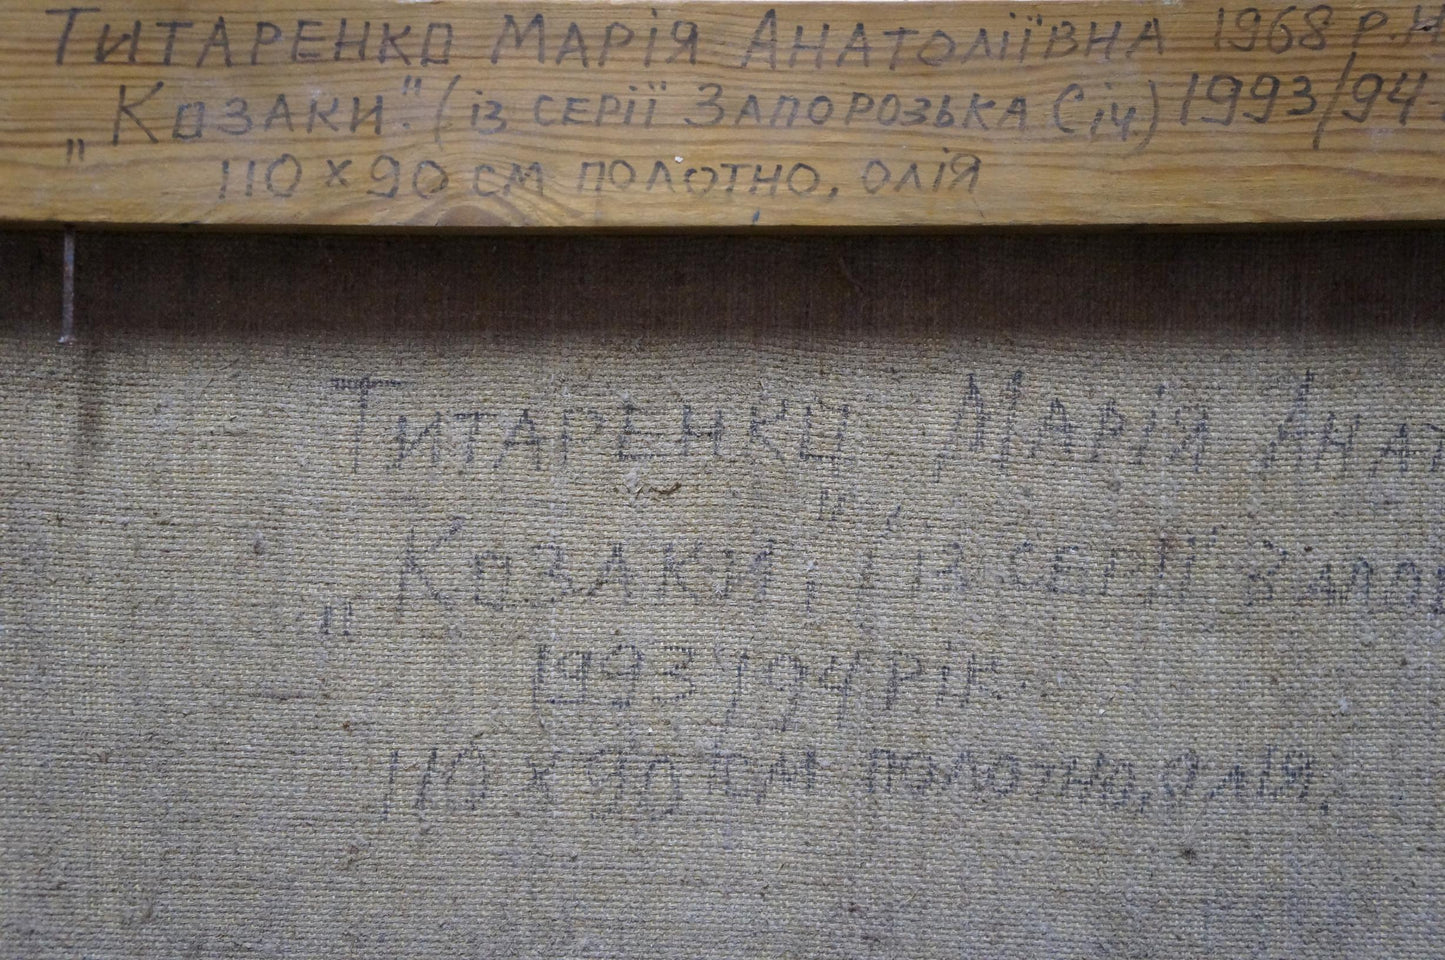 Титаренко Марія Анатоліївна 1968 р.н
„Козаки". (із серії Запорозька Січ) 1993/94
110 х 90 см полотно, олія
Титаренко Марія Анат
„Козаки" (із серії Запор
1993/94 рік.
110 х 90 см полотно, олія.